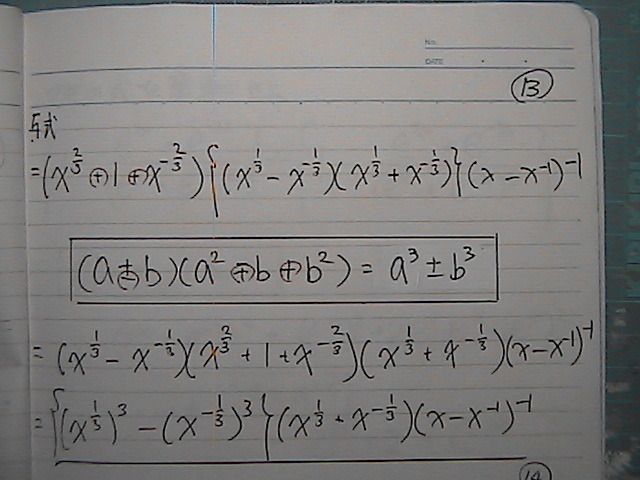 No.
DATE
⑬
与式
=(x^{2/3} ⊕ 1 ⊕ x^{-2/3}){(x^{1/3} - x^{-1/3})(x^{1/3} + x^{-1/3})}(x - x^{-1})^{-1}
(a ± b)(a^2 ⊕ b ⊕ b^2) = a^3 ± b^3
= (x^{1/3} - x^{-1/3})(x^{2/3} + 1 + x^{-2/3})(x^{1/3} + x^{-1/3})(x - x^{-1})^{-1}
= {(x^{1/3})^3 - (x^{-1/3})^3}(x^{1/3} + x^{-1/3})(x - x^{-1})^{-1}
⑭